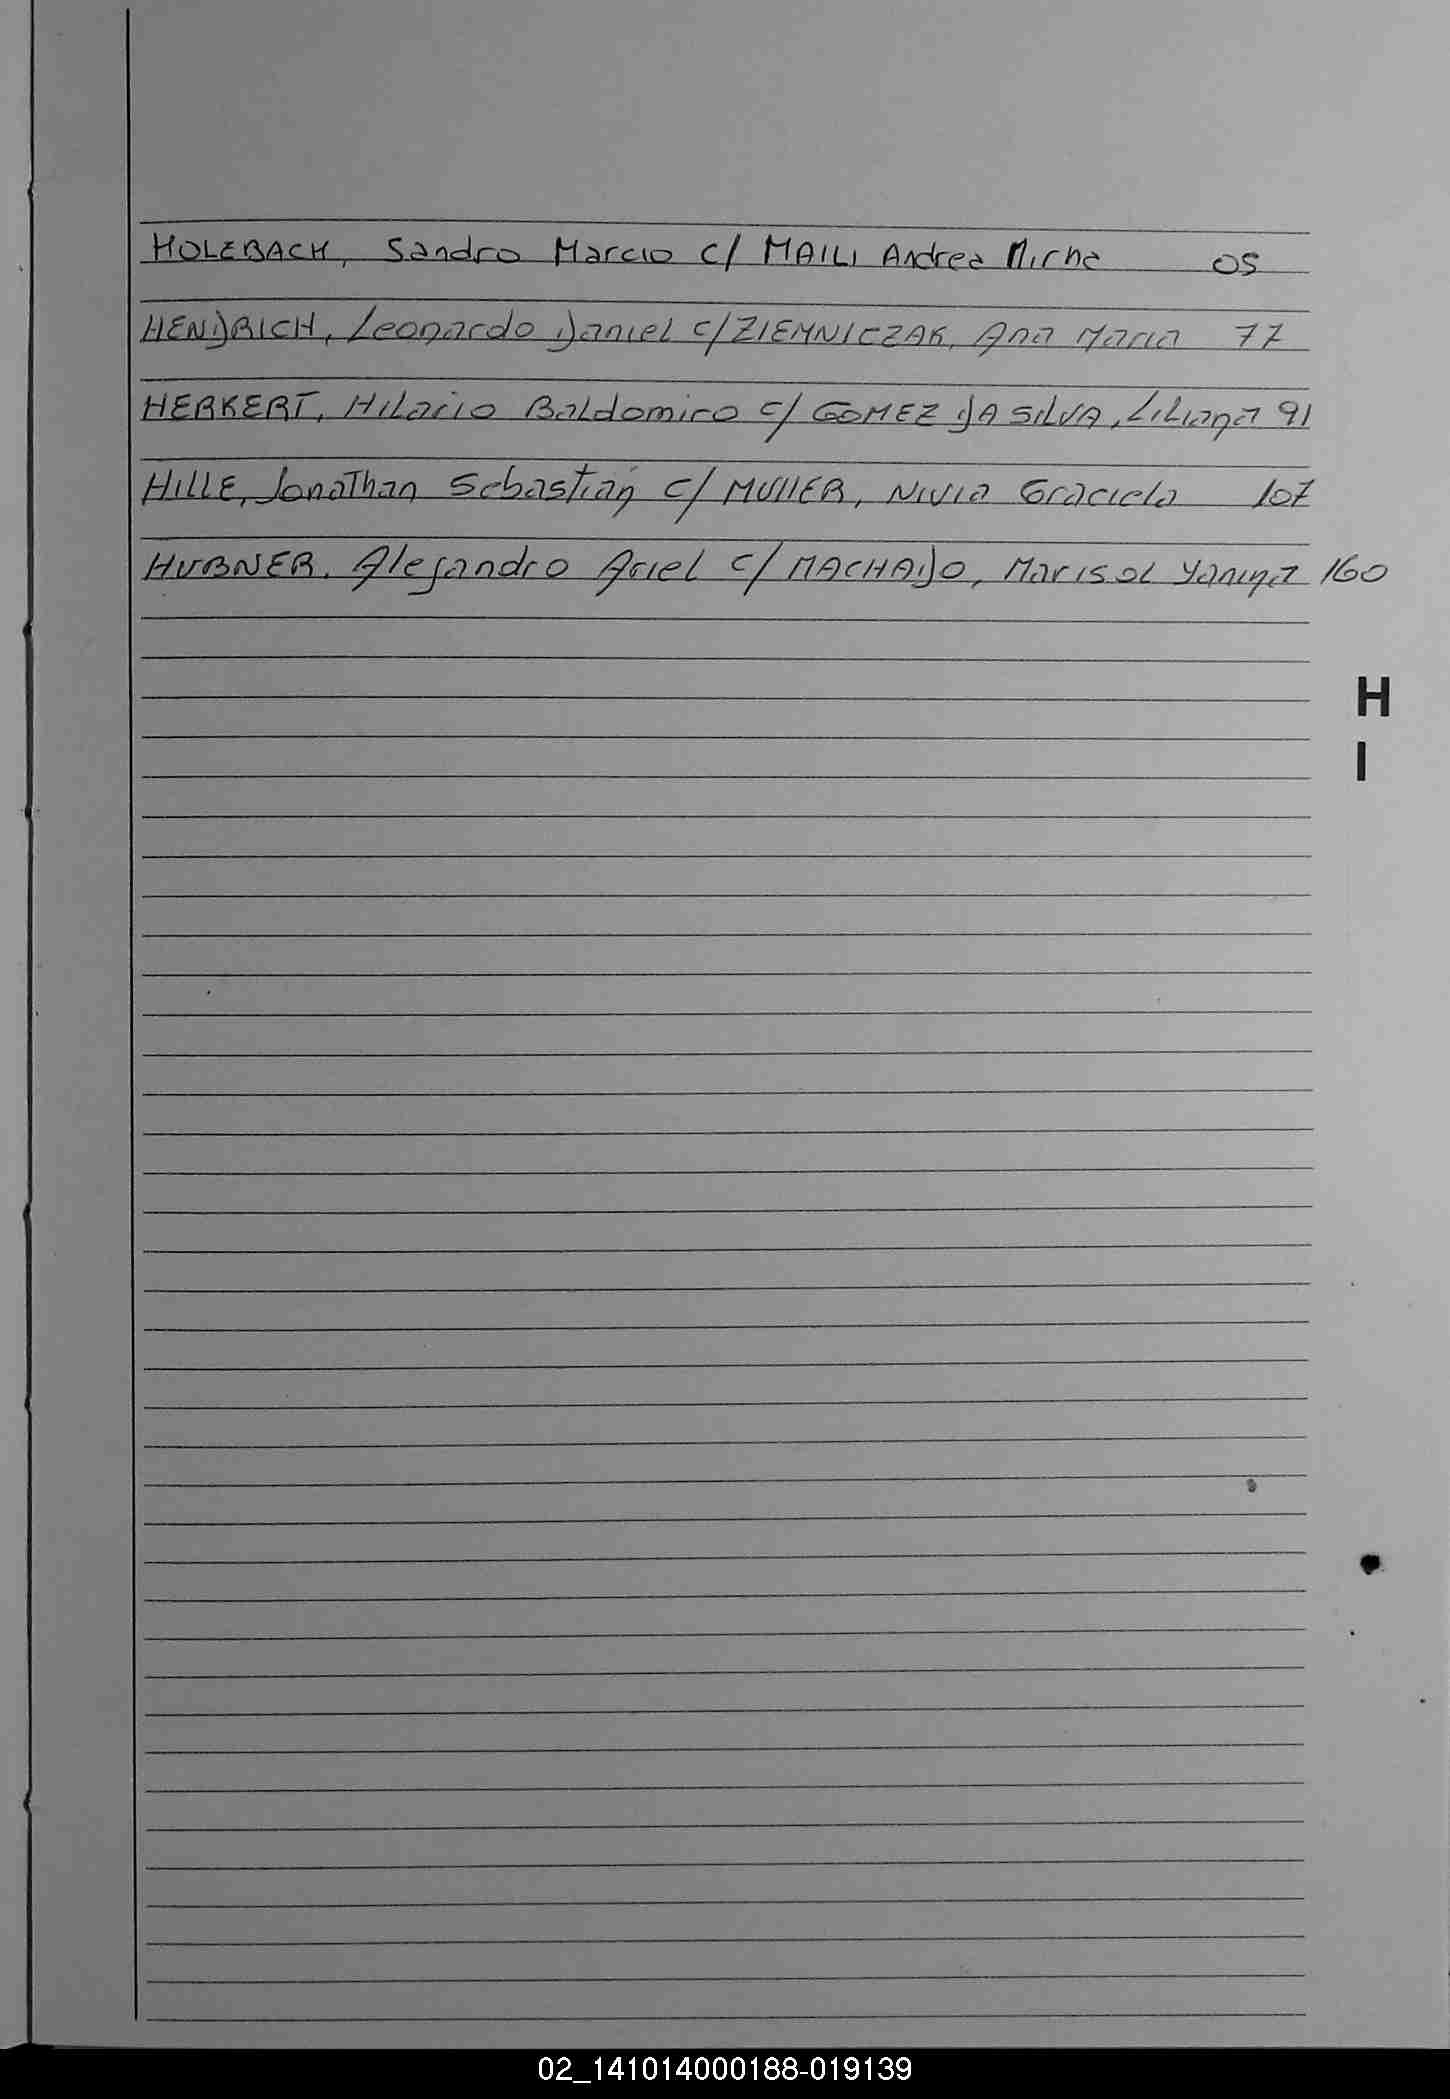 HOLEBACH, Sandro Marcio c/ MAILI Andrea Miche 05
HENDRICH, Leonardo Daniel c/ ZIEMNICZAK, Ana Maria 77
HERKERT, Hilario Baldomiro c/ GOMEZ DA SILVA, Liliana 91
HILLE, Jonathan Sebastián c/ MULLER, Nivia Graciela 107
HUBNER, Alejandro Ariel c/ MACHADO, Marisol Yanina 160
H
I
02_141014000188-019139